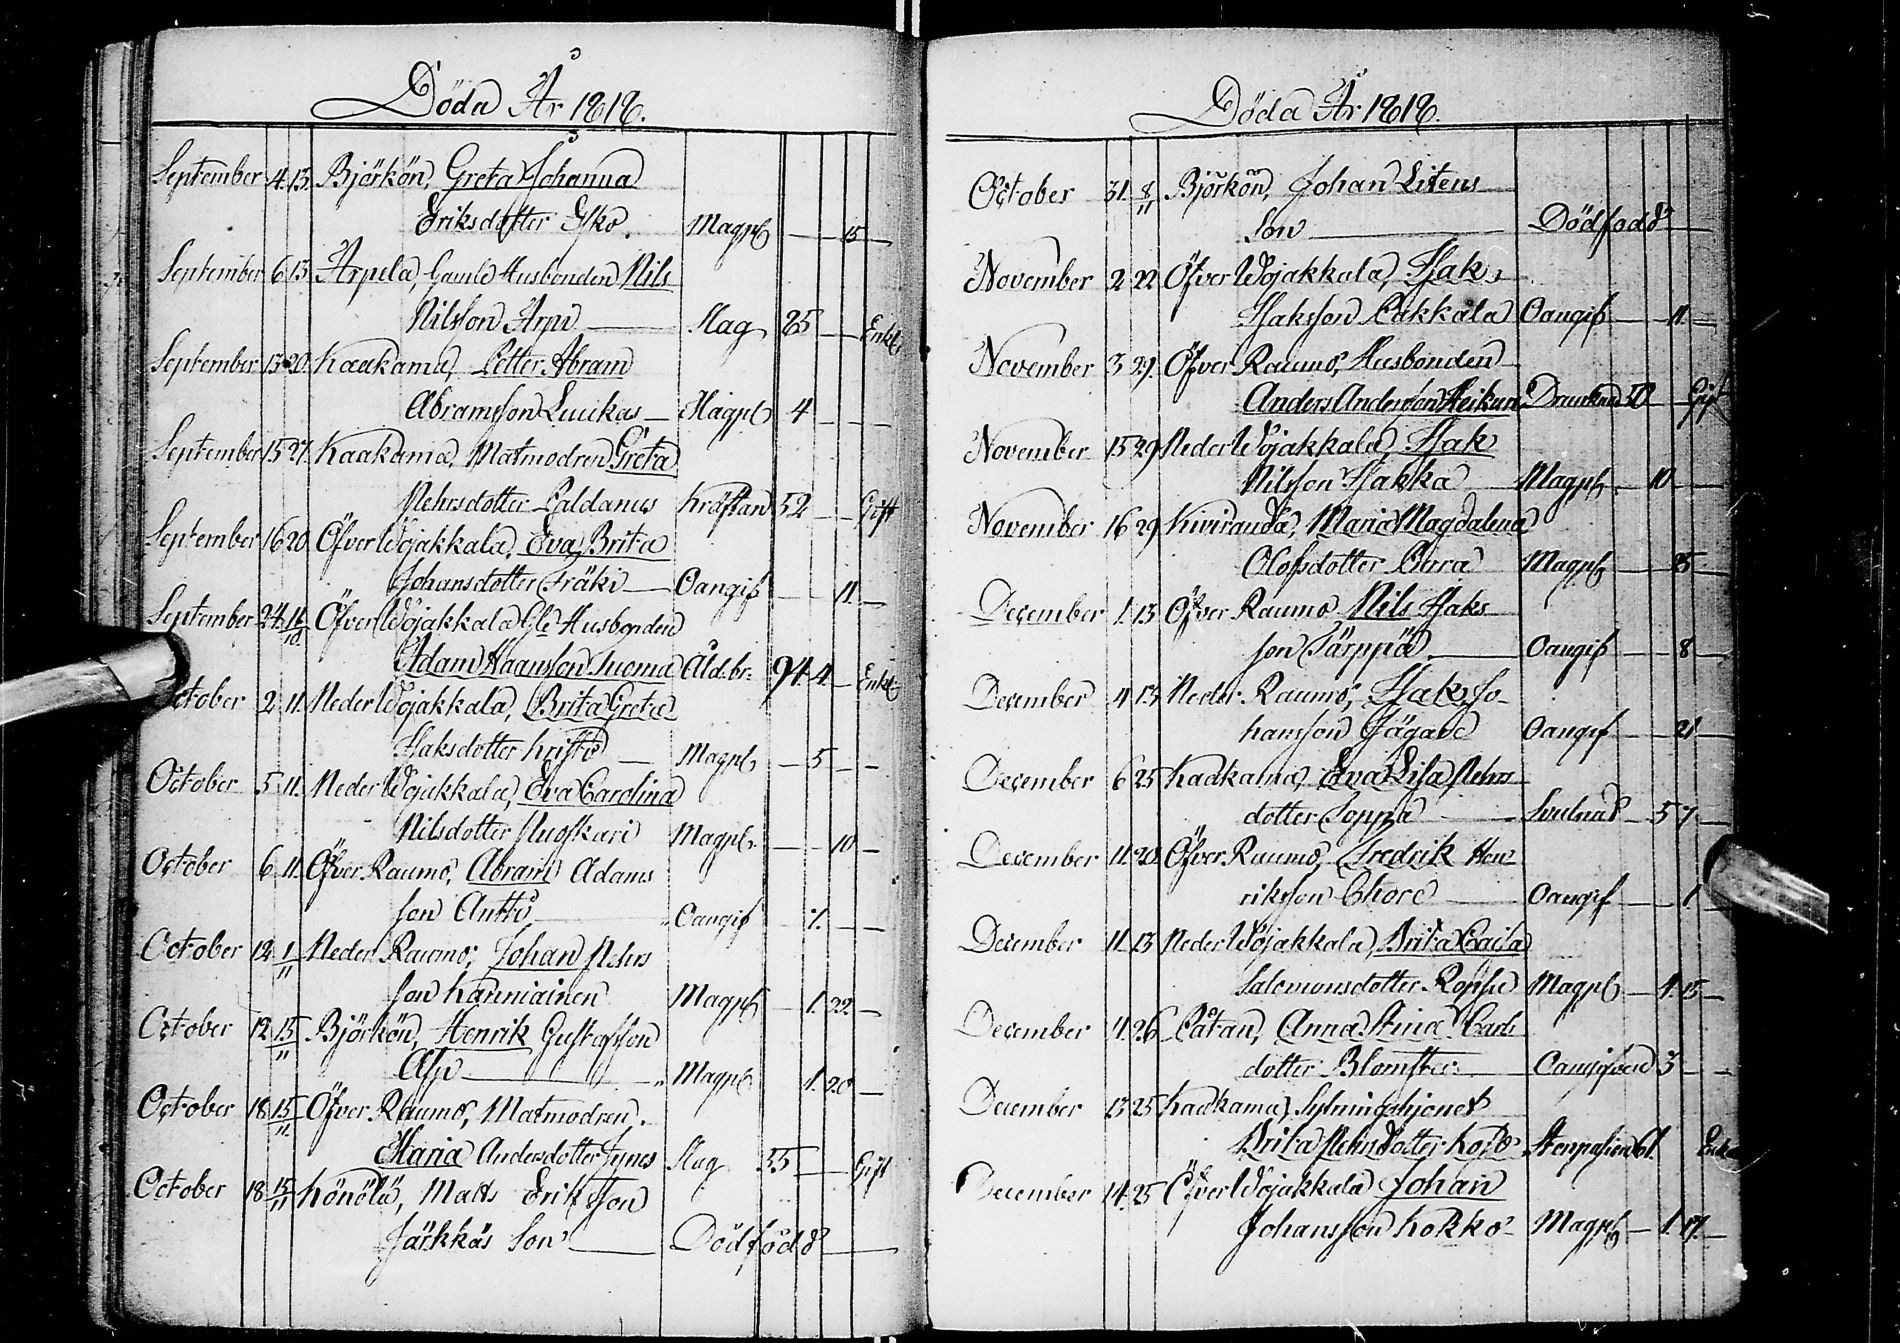 Döda År 1818.
September 4. 13. Björkön, Greta Johanna
Eriksdotter Esko. Magpl 15
September 6 13. Arpela, Gamle Husbonden Nils
Nilsson Arpi Slag 85 Enkl.
September 13 20. Kaakama, Petter Abram
Abramsson Luukas Magpl 4
September 15 27. Kaakama, Matmodren Greta
Pehrsdotter Paldanus Kräftan 52 Gift
September 16 20. Öfver Wojakkala, Eva Brita
Johansdotter Fräki Oangif 11
September 24. 11/10. Öfver Wojakkala Gle Husbonden
Adam Haansson Tuoma Åld:br: 91. 4. Enkl.
October 2. 11. Neder Wojakkala, Brita Greta
Isaksdotter Magpl. 5
October 5. 11. Neder Wojakkala, Eva Carolina
Nilsdotter Magpl. 10
October 6. 11. Öfver Raumo, Abram Adams
son Antti Oangif 7.
October 12 1/11 Neder Raumo, Johan Pehrs
son Kanniainen Magpl 1. 22.
October 12 15/11 Björkön, Henrik Gustafsson
Asp Magpl. 1. 28
October 18 15/11. Öfver Raumo, Matmodren,
Maria Andersdotter Slag 55 Gift
October 18. 15/11 Könölä, Matts Eriksson
Järkkäs Son Dödfödd
Döda År 1818.
October 31. 8/11 Björkön, Johan Litens
Son Dödfödd
November 2 22 Öfver Wojakkala, Isak
Isaksson Pakkala Oangif 11.
November 3 29. Öfver Raumo, Husbonden
Anders Andersson Heikura 50 Gift
November 15 29 Neder Wojakkala, Isak
Nilsson Hakka Magpl. 10
November 16 29 Kiviranda, Maria Magdalena
Olofsdotter Magpl 25
December 1. 13 Öfver Raumo Nils Isaks
son Särppä Oangif 8
December 4 13 Neder Raumo, Isak Jo-
hansson Jägare Oangif 21
December 6 25 Kaakama, Eva Lisa Pehrs
dotter Soppa Svulnad 5 7
December 11. 20. Öfver Raumo, Fredrik Hen-
riksson Choré Oangif 1
December 11. 13 Neder Wojakkala, Brita Cajsa
Salomonsdotter Magpl 4. 15
December 11. 26 Påtan, Anna Stina Carls
dotter Blomster Oangifven 3
December 13 25 Kaakama, Sytningshjonet
Brita Pehrsdotter Koro 61.
December 14. 25 Öfver Wojakkala Johan
Johansson Kokko Magpl 1. 17.